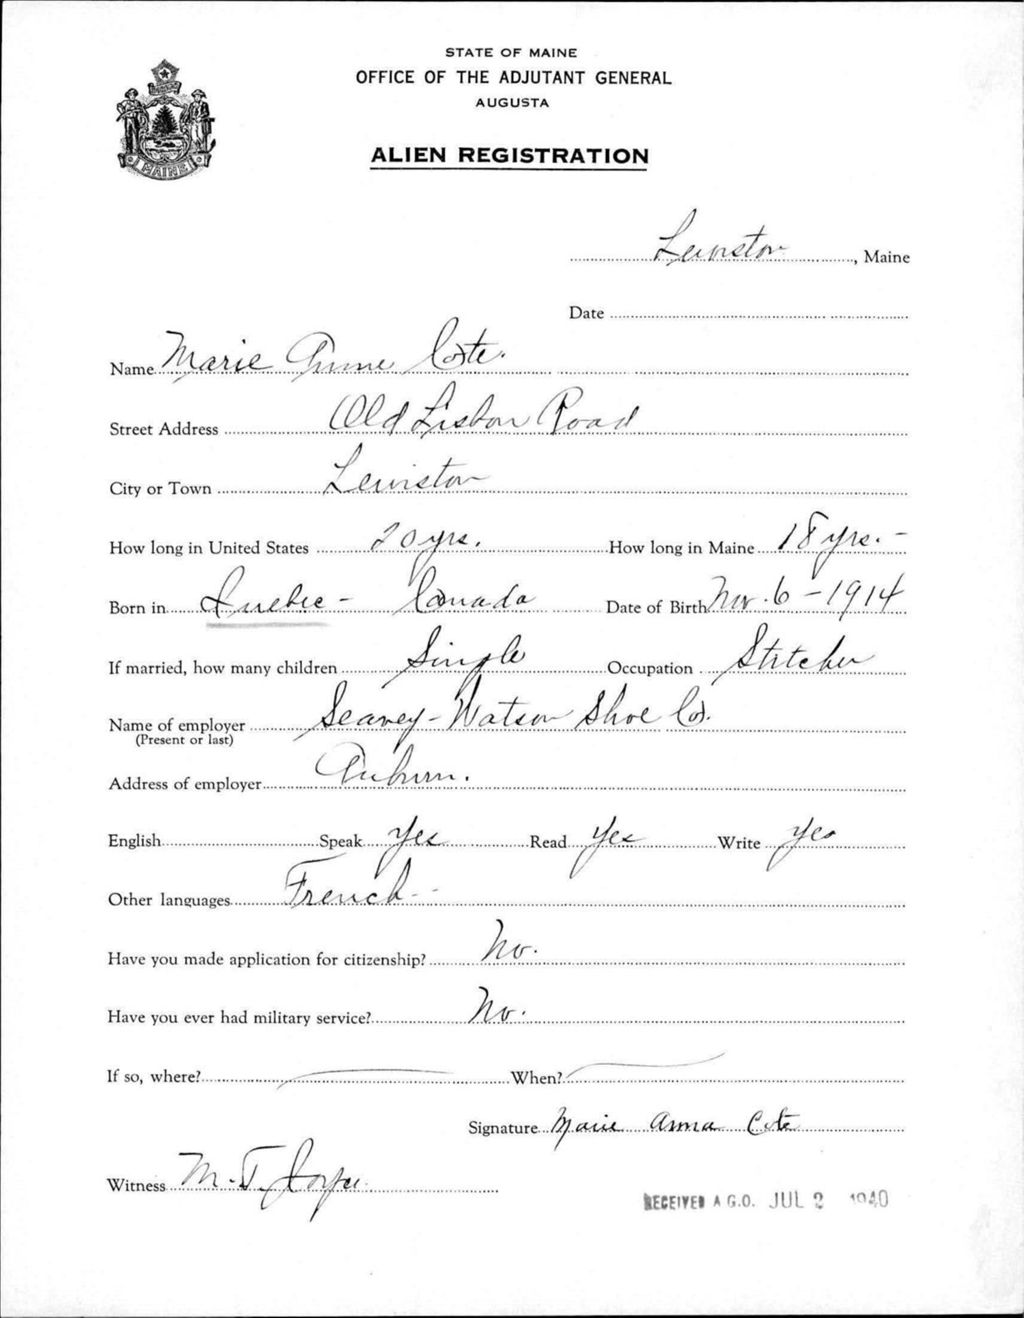 STATE OF MAINE
OFFICE OF THE ADJUTANT GENERAL
AUGUSTA
ALIEN REGISTRATION
MAINE
Lewiston, Maine
Date
Name Marie Anne Cote.
Street Address Old Lisbon Road
City or Town Lewiston
How long in United States 20 yrs. How long in Maine 18 yrs. -
Born in Quebec - Canada Date of Birth Nov. 6 - 1914
If married, how many children Single Occupation Stitcher
Name of employer Seavey - Watson Shoe Co.
(Present or last)
Address of employer Auburn.
English Speak Yes Read Yes Write Yes
Other languages French -
Have you made application for citizenship? No.
Have you ever had military service? No.
If so, where? When?
Signature Marie Anna Cote
Witness M. T. Joyce
RECEIVED A.G.O. JUL 2 1940